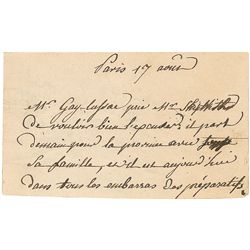 Paris 17 août
Mr. Gay-Lussac prie Mr.
de vouloir bien l'excuser; il part
demain pour la province avec
sa famille, et il est aujourd'hui
dans tous les embarras des préparatifs